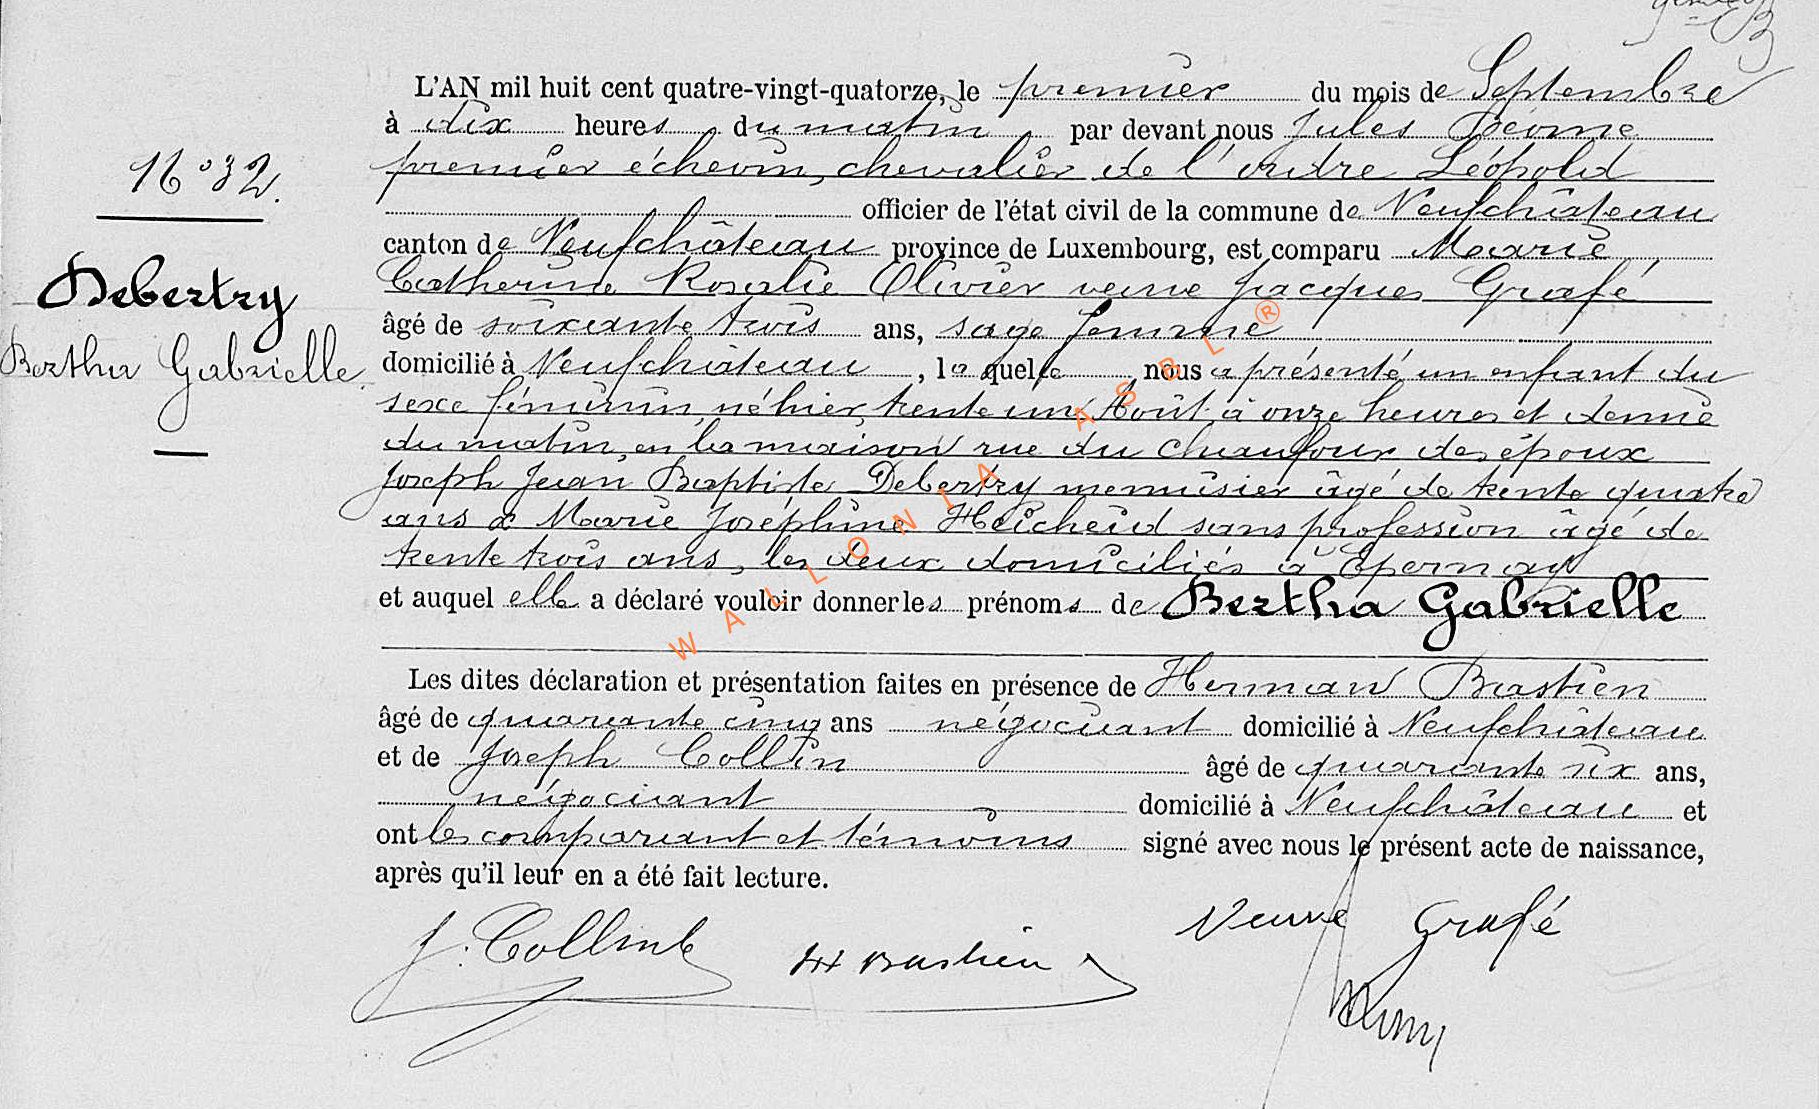 L'AN mil huit cent quatre-vingt-quatorze, le premier du mois de Septembre
à dix heures du matin par devant nous Jules
premier échevin, chevalier de l'ordre Léopold
officier de l'état civil de la commune de Neufchâteau
canton de Neufchâteau province de Luxembourg, est comparu Marie
Catherine Rosalie Olivier veuve Jacques Grafé
âgé de soixante trois ans, sage femme
domicilié à Neufchâteau, laquelle nous a présenté un enfant du
sexe féminin, né hier, trente un Août à onze heures et demie
du matin, en la maison rue du Chaufour des époux
Joseph Jean Baptiste Debertry menuisier âgé de trente quatre
ans & Marie Joséphine Heicheid sans profession âgé de
trente trois ans, les deux domiciliés à Epernay
et auquel elle a déclaré vouloir donner les prénoms de Bertha Gabrielle
Les dites déclaration et présentation faites en présence de Herman Bastien
âgé de quarante cinq ans négociant domicilié à Neufchâteau
et de Joseph Collin âgé de quarante six ans,
négociant domicilié à Neufchâteau et
ont les comparant et témoins signé avec nous le présent acte de naissance,
après qu'il leur en a été fait lecture.
J. Collin H Bastien Veuve Grafé
N° 32.
Debertry
Bertha Gabrielle
WALLONIA ASBL ®